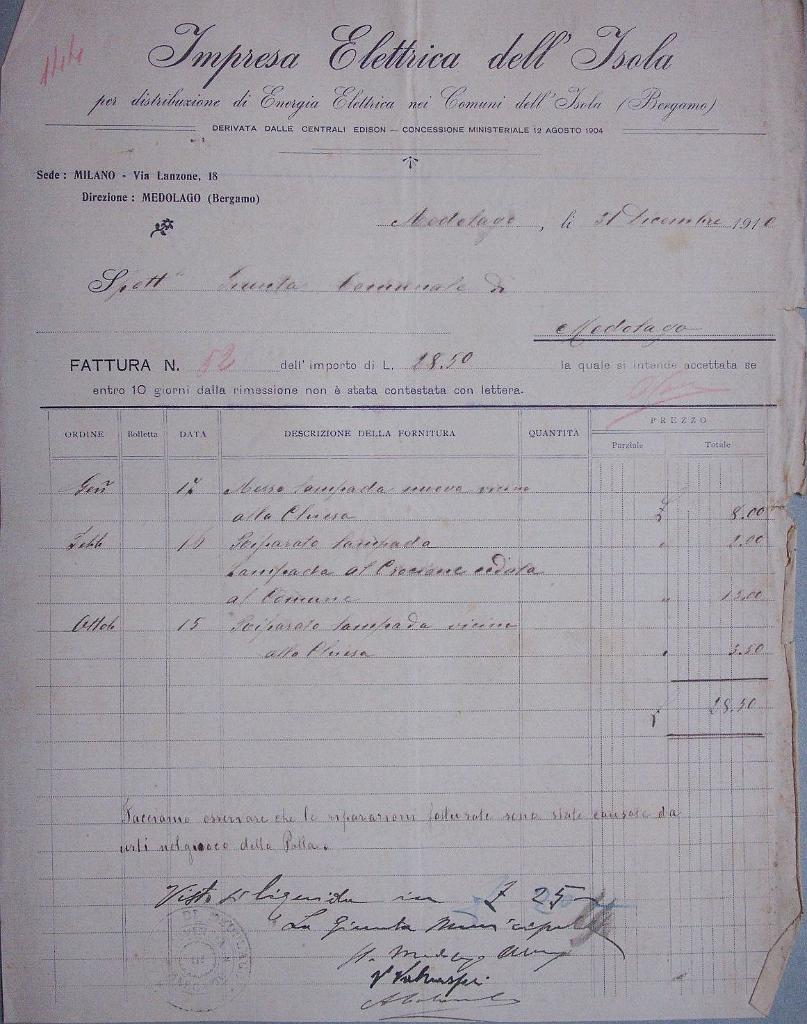 144
Impresa Elettrica dell' Isola
per distribuzione di Energia Elettrica nei Comuni dell' Isola (Bergamo)
DERIVATA DALLE CENTRALI EDISON — CONCESSIONE MINISTERIALE 12 AGOSTO 1904
Sede : MILANO - Via Lanzone, 18
Direzione : MEDOLAGO (Bergamo)
Medolago, li 31 Dicembre 1910
Spett Giunta Comunale di
Medolago
FATTURA N. 52 dell' importo di L. 28.50 la quale si intende accettata se
entro 10 giorni dalla rimessione non è stata contestata con lettera.
ORDINE Bolletta DATA DESCRIZIONE DELLA FORNITURA QUANTITÀ PREZZO
Parziale Totale
Genn 17 Messo lampada nuova vicino
alla Chiesa £ 8.00
Febb 16 Riparato lampada " 2.00
Lampada al Crocione ceduta
al Comune " 15.00
Ottob 15 Riparato lampada vicino
alla Chiesa " 3.50
£ 28.50
Facciamo osservare che le riparazioni fatturate sono state causate da
urti nel giuoco della Palla.
Visto si liquida in £ 25
La Giunta Municipale